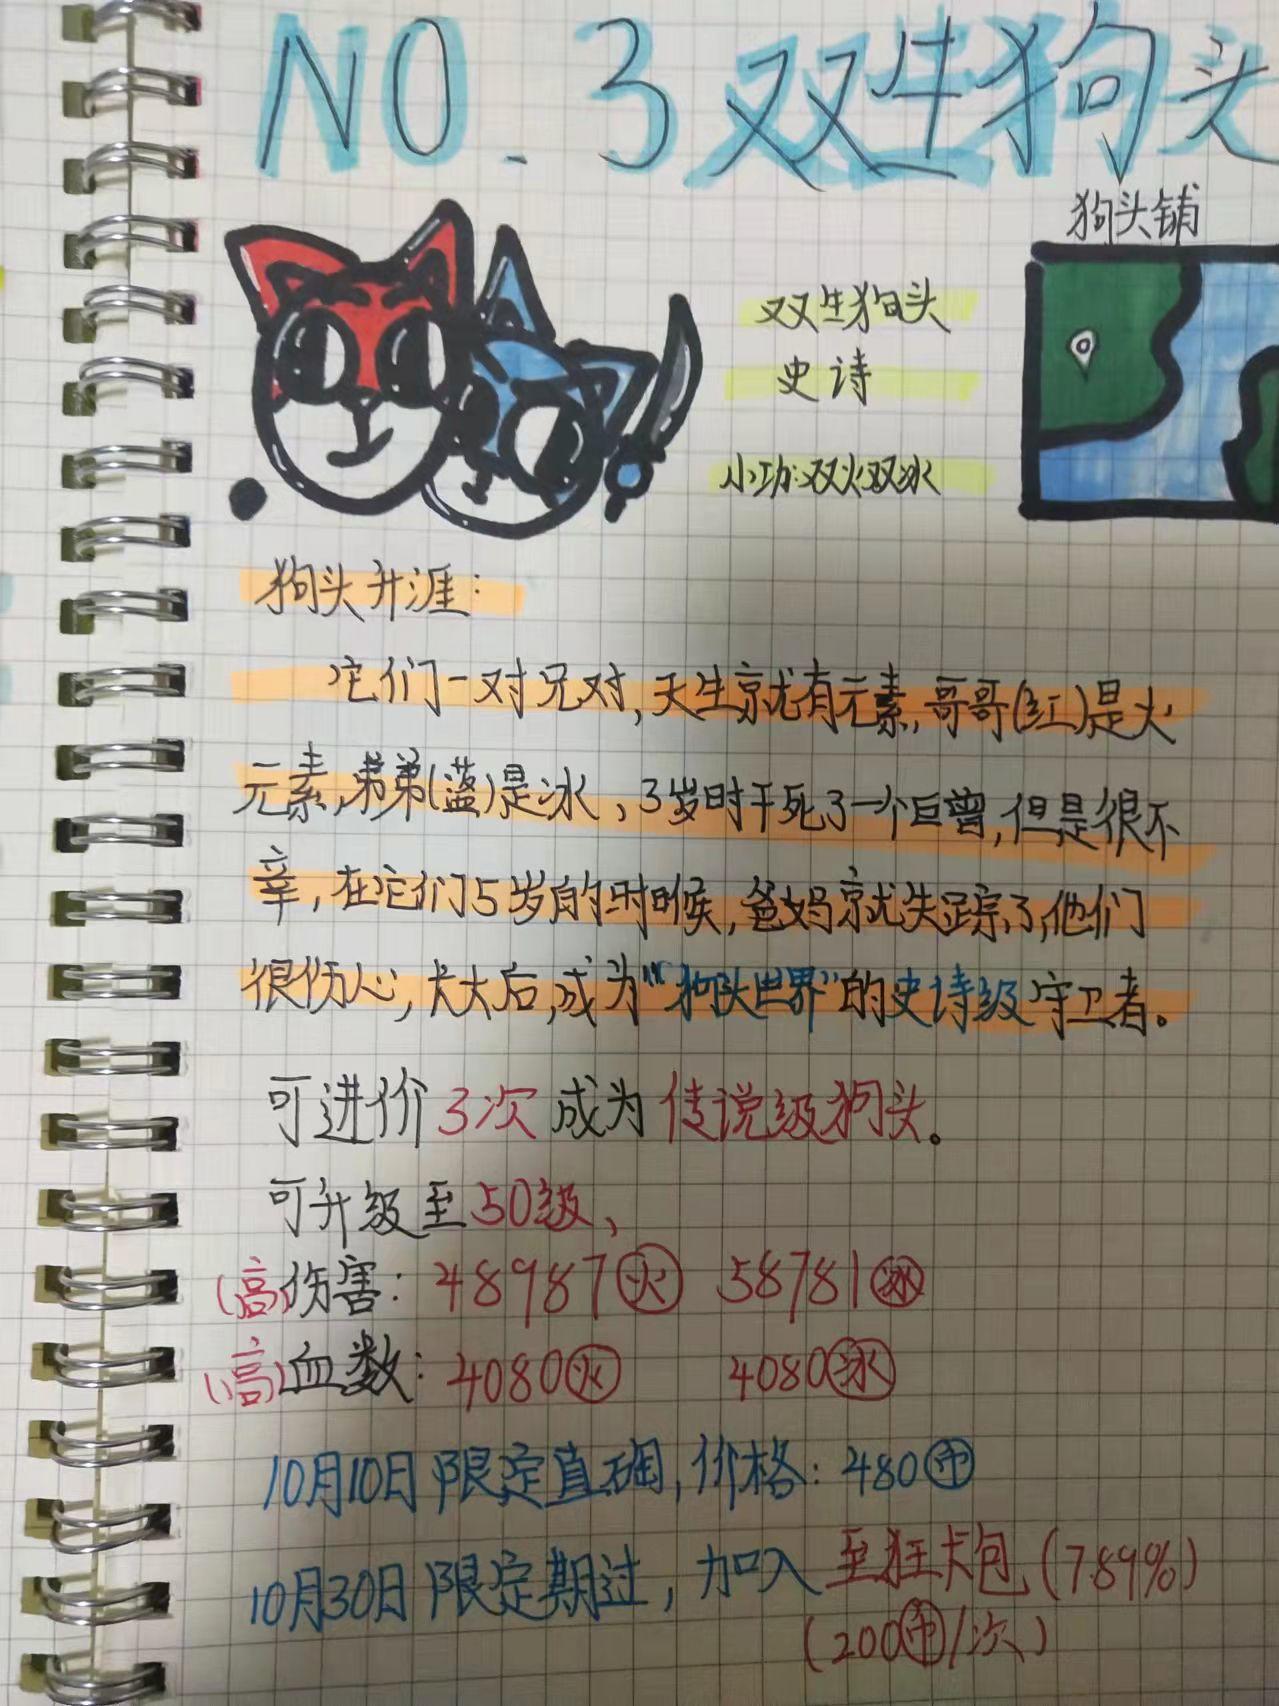 NO.3双生狗头
狗头铺
双生狗头
史诗
小功:双火双冰
狗头升涯:
它们一对兄对,天生就有元素,哥哥(红)是火
元素,弟弟(蓝)是冰,3岁时干死了一个巨兽,但是很不
幸,在它们5岁的时候,爸妈就失踪了,他们
很伤心,长大后,成为“狗头世界”的史诗级守卫者。
可进价3次成为传说级狗头。
可升级至50级、
(高)伤害:48987火 58781冰
(高)血数:4080火 4080冰
10月10日限定直 ,价格:480币
10月30日限定期过,加入至狂卡包(7.89%)
(200币/次)